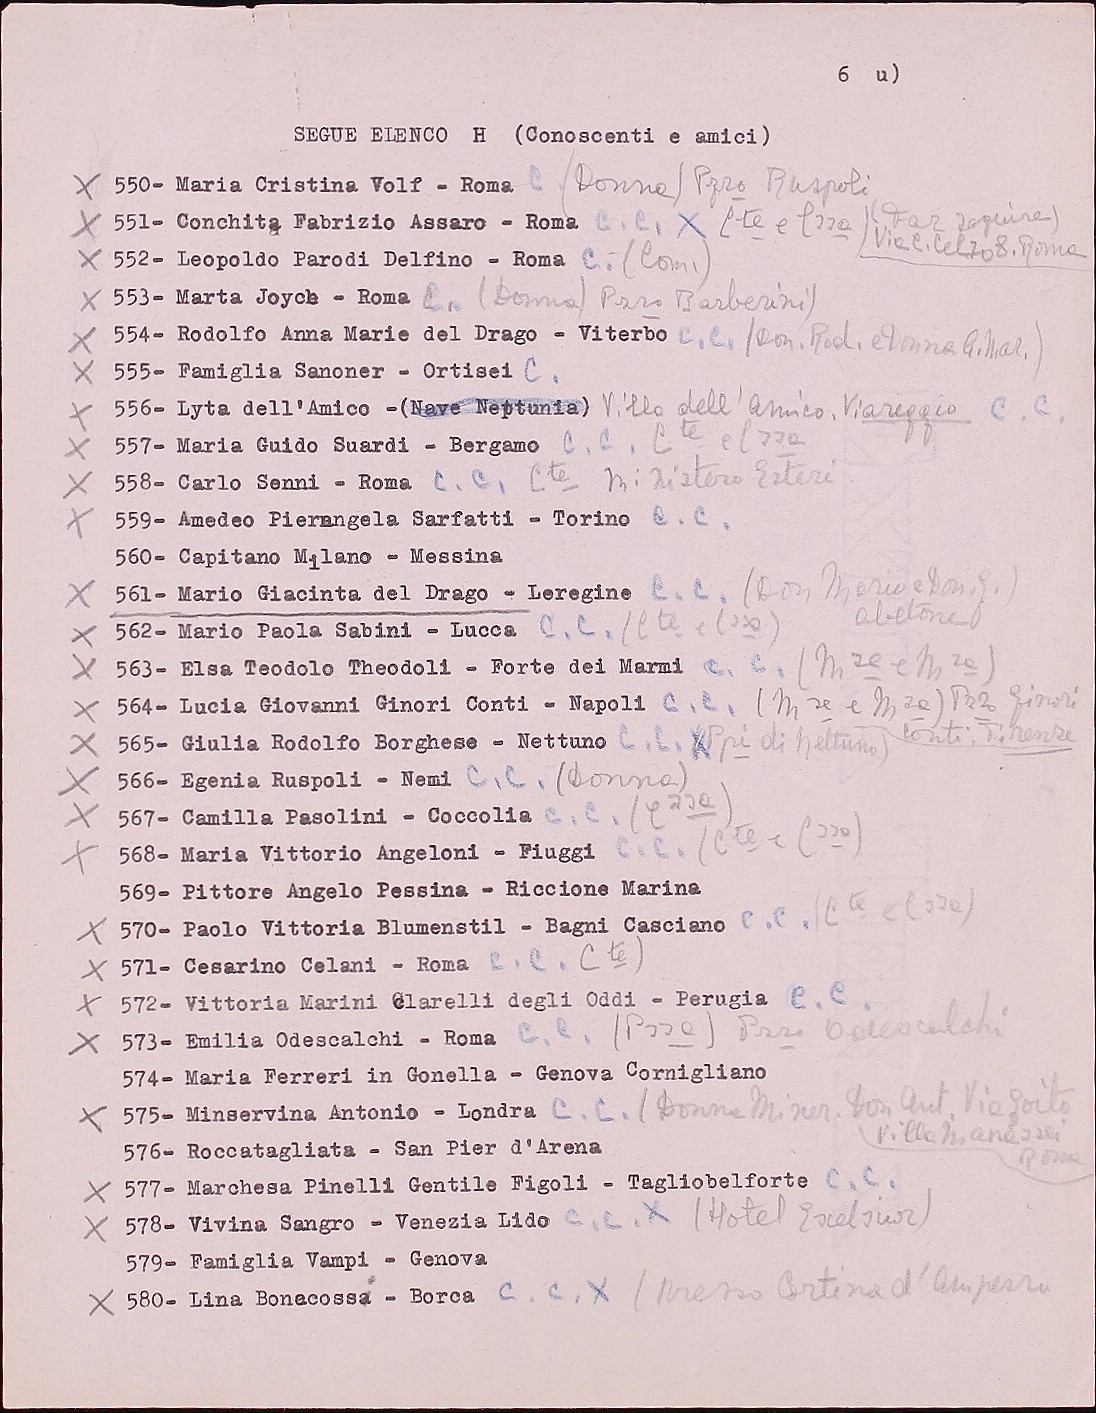 6 u)
SEGUE ELENCO H (Conoscenti e amici)
X 550- Maria Cristina Volf - Roma C (Donna) Pzzo Ruspoli
X 551- Conchita Fabrizio Assaro - Roma C.C. X Cte e Cssa (Far seguire)
Via C. Celso 8. Roma
X 552- Leopoldo Parodi Delfino - Roma C. (Com.)
X 553- Marta Joyce - Roma C. (Donna) Pzzo Barberini)
X 554- Rodolfo Anna Marie del Drago - Viterbo C.C. (Don. Rod. e Donna A. Mar.)
X 555- Famiglia Sanoner - Ortisei C.
X 556- Lyta dell'Amico -(Nave Neptunia) Villa dell'Amico. Viareggio C.C.
X 557- Maria Guido Suardi - Bergamo C.C. Cte e Cssa
X 558- Carlo Senni - Roma C.C. Cte Ministero Esteri
X 559- Amedeo Pierangela Sarfatti - Torino C.C.
560- Capitano Milano - Messina
X 561- Mario Giacinta del Drago - Leregine C.C. (Don Mario e Don. G.)
abetone)
X 562- Mario Paola Sabini - Lucca C.C. (Cte e Cssa)
X 563- Elsa Teodolo Theodoli - Forte dei Marmi C.C. (Mse e Msa)
X 564- Lucia Giovanni Ginori Conti - Napoli C.C. (Mse e Msa) Pzzo Ginori
Conti. Firenze
X 565- Giulia Rodolfo Borghese - Nettuno C.C. X (Ppi di Nettuno)
X 566- Egenia Ruspoli - Nemi C.C. (Donna)
X 567- Camilla Pasolini - Coccolia C.C. (Cssa)
X 568- Maria Vittorio Angeloni - Fiuggi C.C. (Cte e Cssa)
569- Pittore Angelo Pessina - Riccione Marina
X 570- Paolo Vittoria Blumenstil - Bagni Casciano C.C. (Cte e Cssa)
X 571- Cesarino Celani - Roma C.C. Cte)
X 572- Vittoria Marini Clarelli degli Oddi - Perugia C.C.
X 573- Emilia Odescalchi - Roma C.C. (Pssa) Pzzo Odescalchi
574- Maria Ferreri in Gonella - Genova Cornigliano
X 575- Minservina Antonio - Londra C.C. (Donna Miner. Don Ant. Via Goito
Villa Manassei
Roma
576- Roccatagliata - San Pier d'Arena
X 577- Marchesa Pinelli Gentile Figoli - Tagliobelforte C.C.
X 578- Vivina Sangro - Venezia Lido C.C. X (Hotel Excelsior)
579- Famiglia Vampi - Genova
X 580- Lina Bonacossa - Borca C.C. X (presso Cortina d'Ampezzo